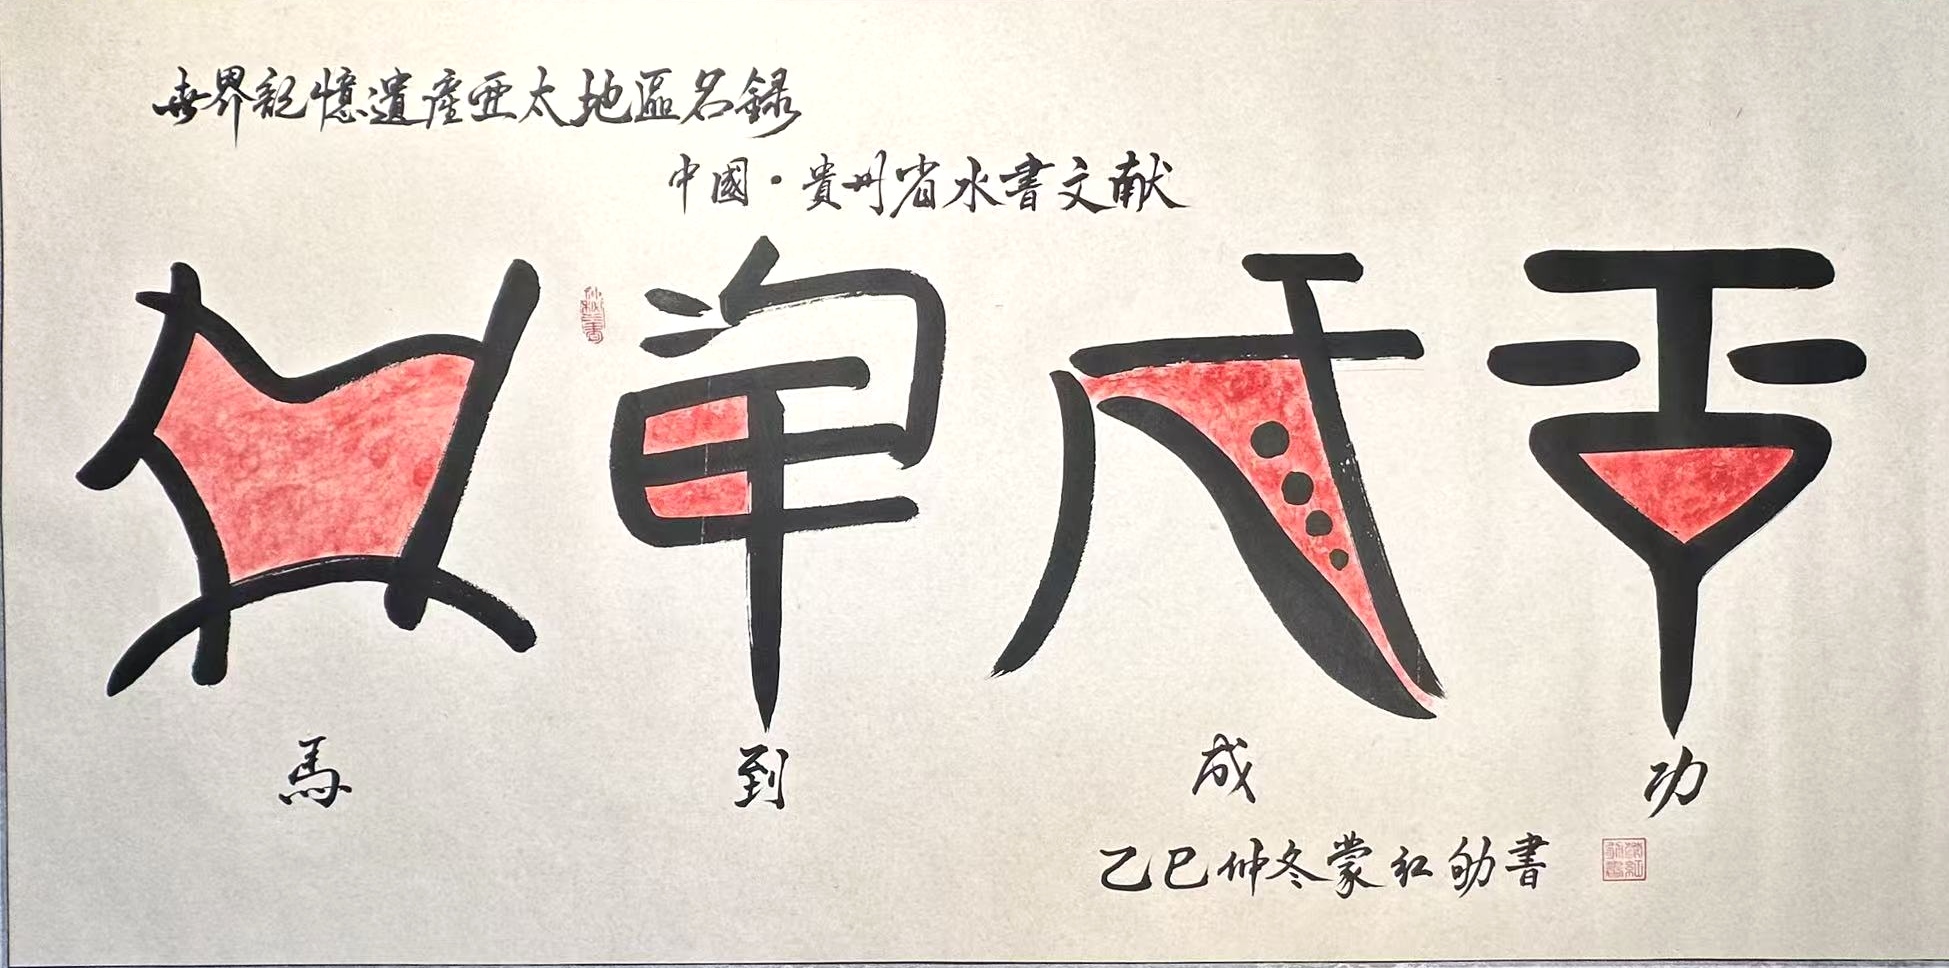 世界記憶遺産亜太地區名録
中國·貴州省水書文献
馬到成功
乙巳仲冬蒙红劬書